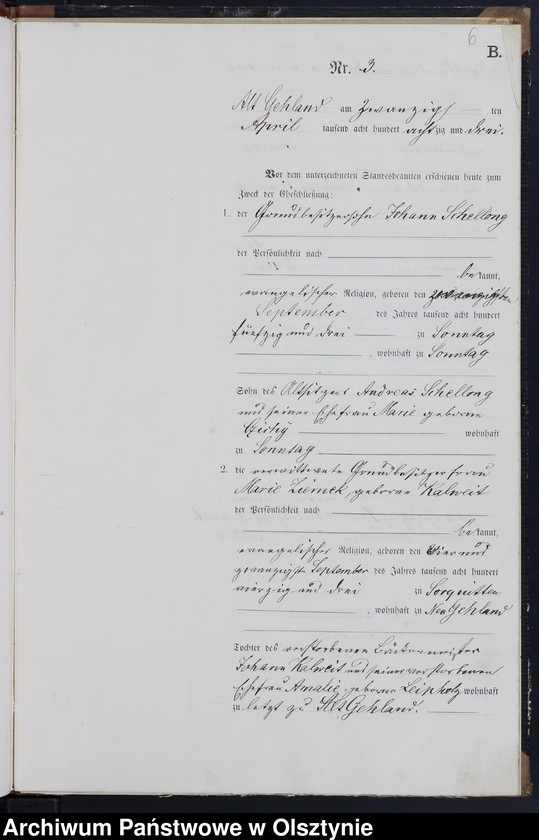 6
B.
Nr. 3.
Alt Gehland am Zwanzigs ten
April tausend acht hundert achtzig und drei.
Vor dem unterzeichneten Standesbeamten erschienen heute zum
Zweck der Eheschließung:
1. der Grundbesitzersohn Johann Schellong
der Persönlichkeit nach
bekannt,
evangelischer Religion, geboren den zwanzigsten
September des Jahres tausend acht hundert
fünfzig und drei zu Sonntag
, wohnhaft zu Sonntag
Sohn des Altsitzers Andreas Schellong
und seiner Ehefrau Marie geborene
Czichy wohnhaft
zu Sonntag
2. die verwittwete Grundbesitzerfrau
Marie Ziemek, geborene Kalweit
der Persönlichkeit nach
bekannt,
evangelischer Religion, geboren den Vier und
zwanzigsten September des Jahres tausend acht hundert
vierzig und drei zu Sorquitten
, wohnhaft zu Neu Gehland
Tochter des verstorbenen Bäckermeister
Johann Kalweit und seiner verstorbenen
Ehefrau Amalie, geborene Leipholz wohnhaft
zu letzt zu Alt Gehland.
Archiwum Państwowe w Olsztynie